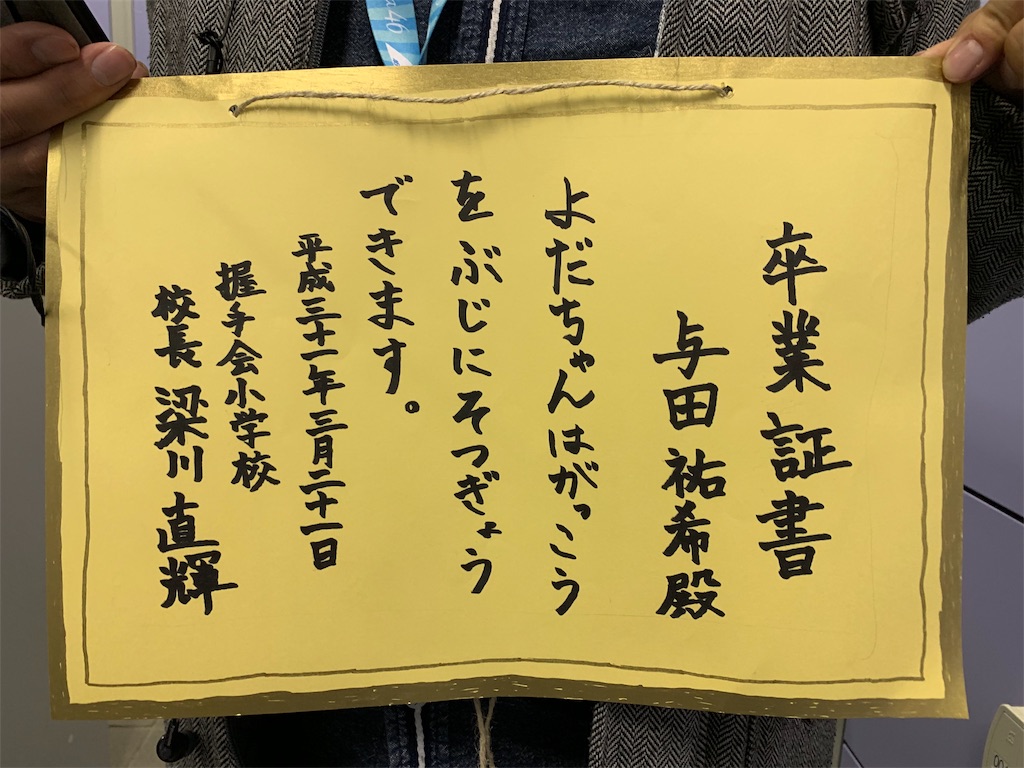 卒業証書
与田祐希殿
よだちゃんはがっこう
をぶじにそつぎょう
できます。
平成三十一年三月二十一日
握手会小学校
校長 梁川直輝
46